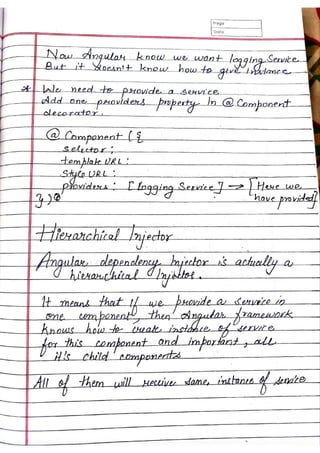 Page
Date
Now Angular know we want logging Service
But it doesn't know how to give instance
* We need to provide a service
Add one providers property in @ Component
decorator.
@ Component ({
selector :
template URL :
Style URL :
providers : [logging Service] → [Here we
have provided]
})
Hierarchical Injector
Angular dependency Injector is actually a
hierarchical Injector.
It means that if we provide a service in
one component, then Angular framework
knows how to create instance of service
for this component and important, all
it's child components
All of them will receive same instance of service